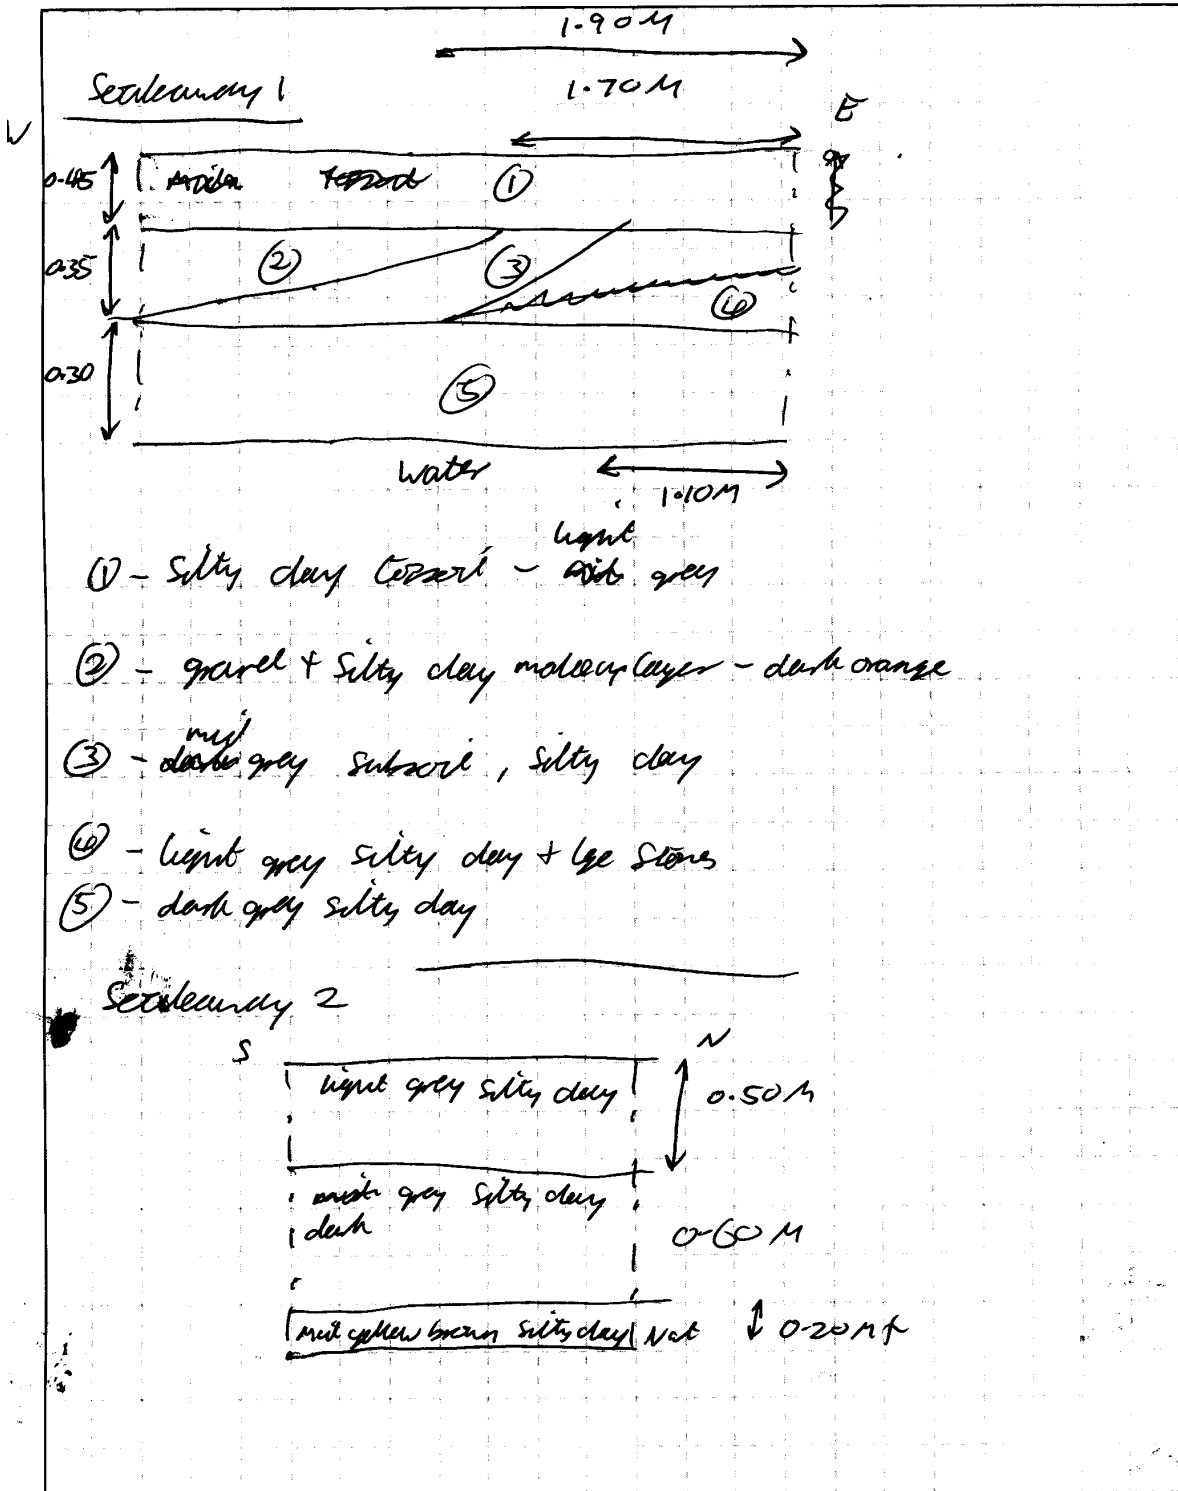 1.90M
Soakaway 1
1.70M
W
E
0.45
①
0.35
②
③
④
0.30
⑤
Water
1.10M
① - Silty clay topsoil - light grey
② - gravel + silty clay makeup layer - dark orange
③ - mid grey subsoil, silty clay
④ - light grey silty clay + lge stones
⑤ - dark grey silty clay
Soakaway 2
S
N
light grey silty clay
0.50M
grey silty clay
dark
0.60M
mid yellow brown silty clay Nat 0.20M+